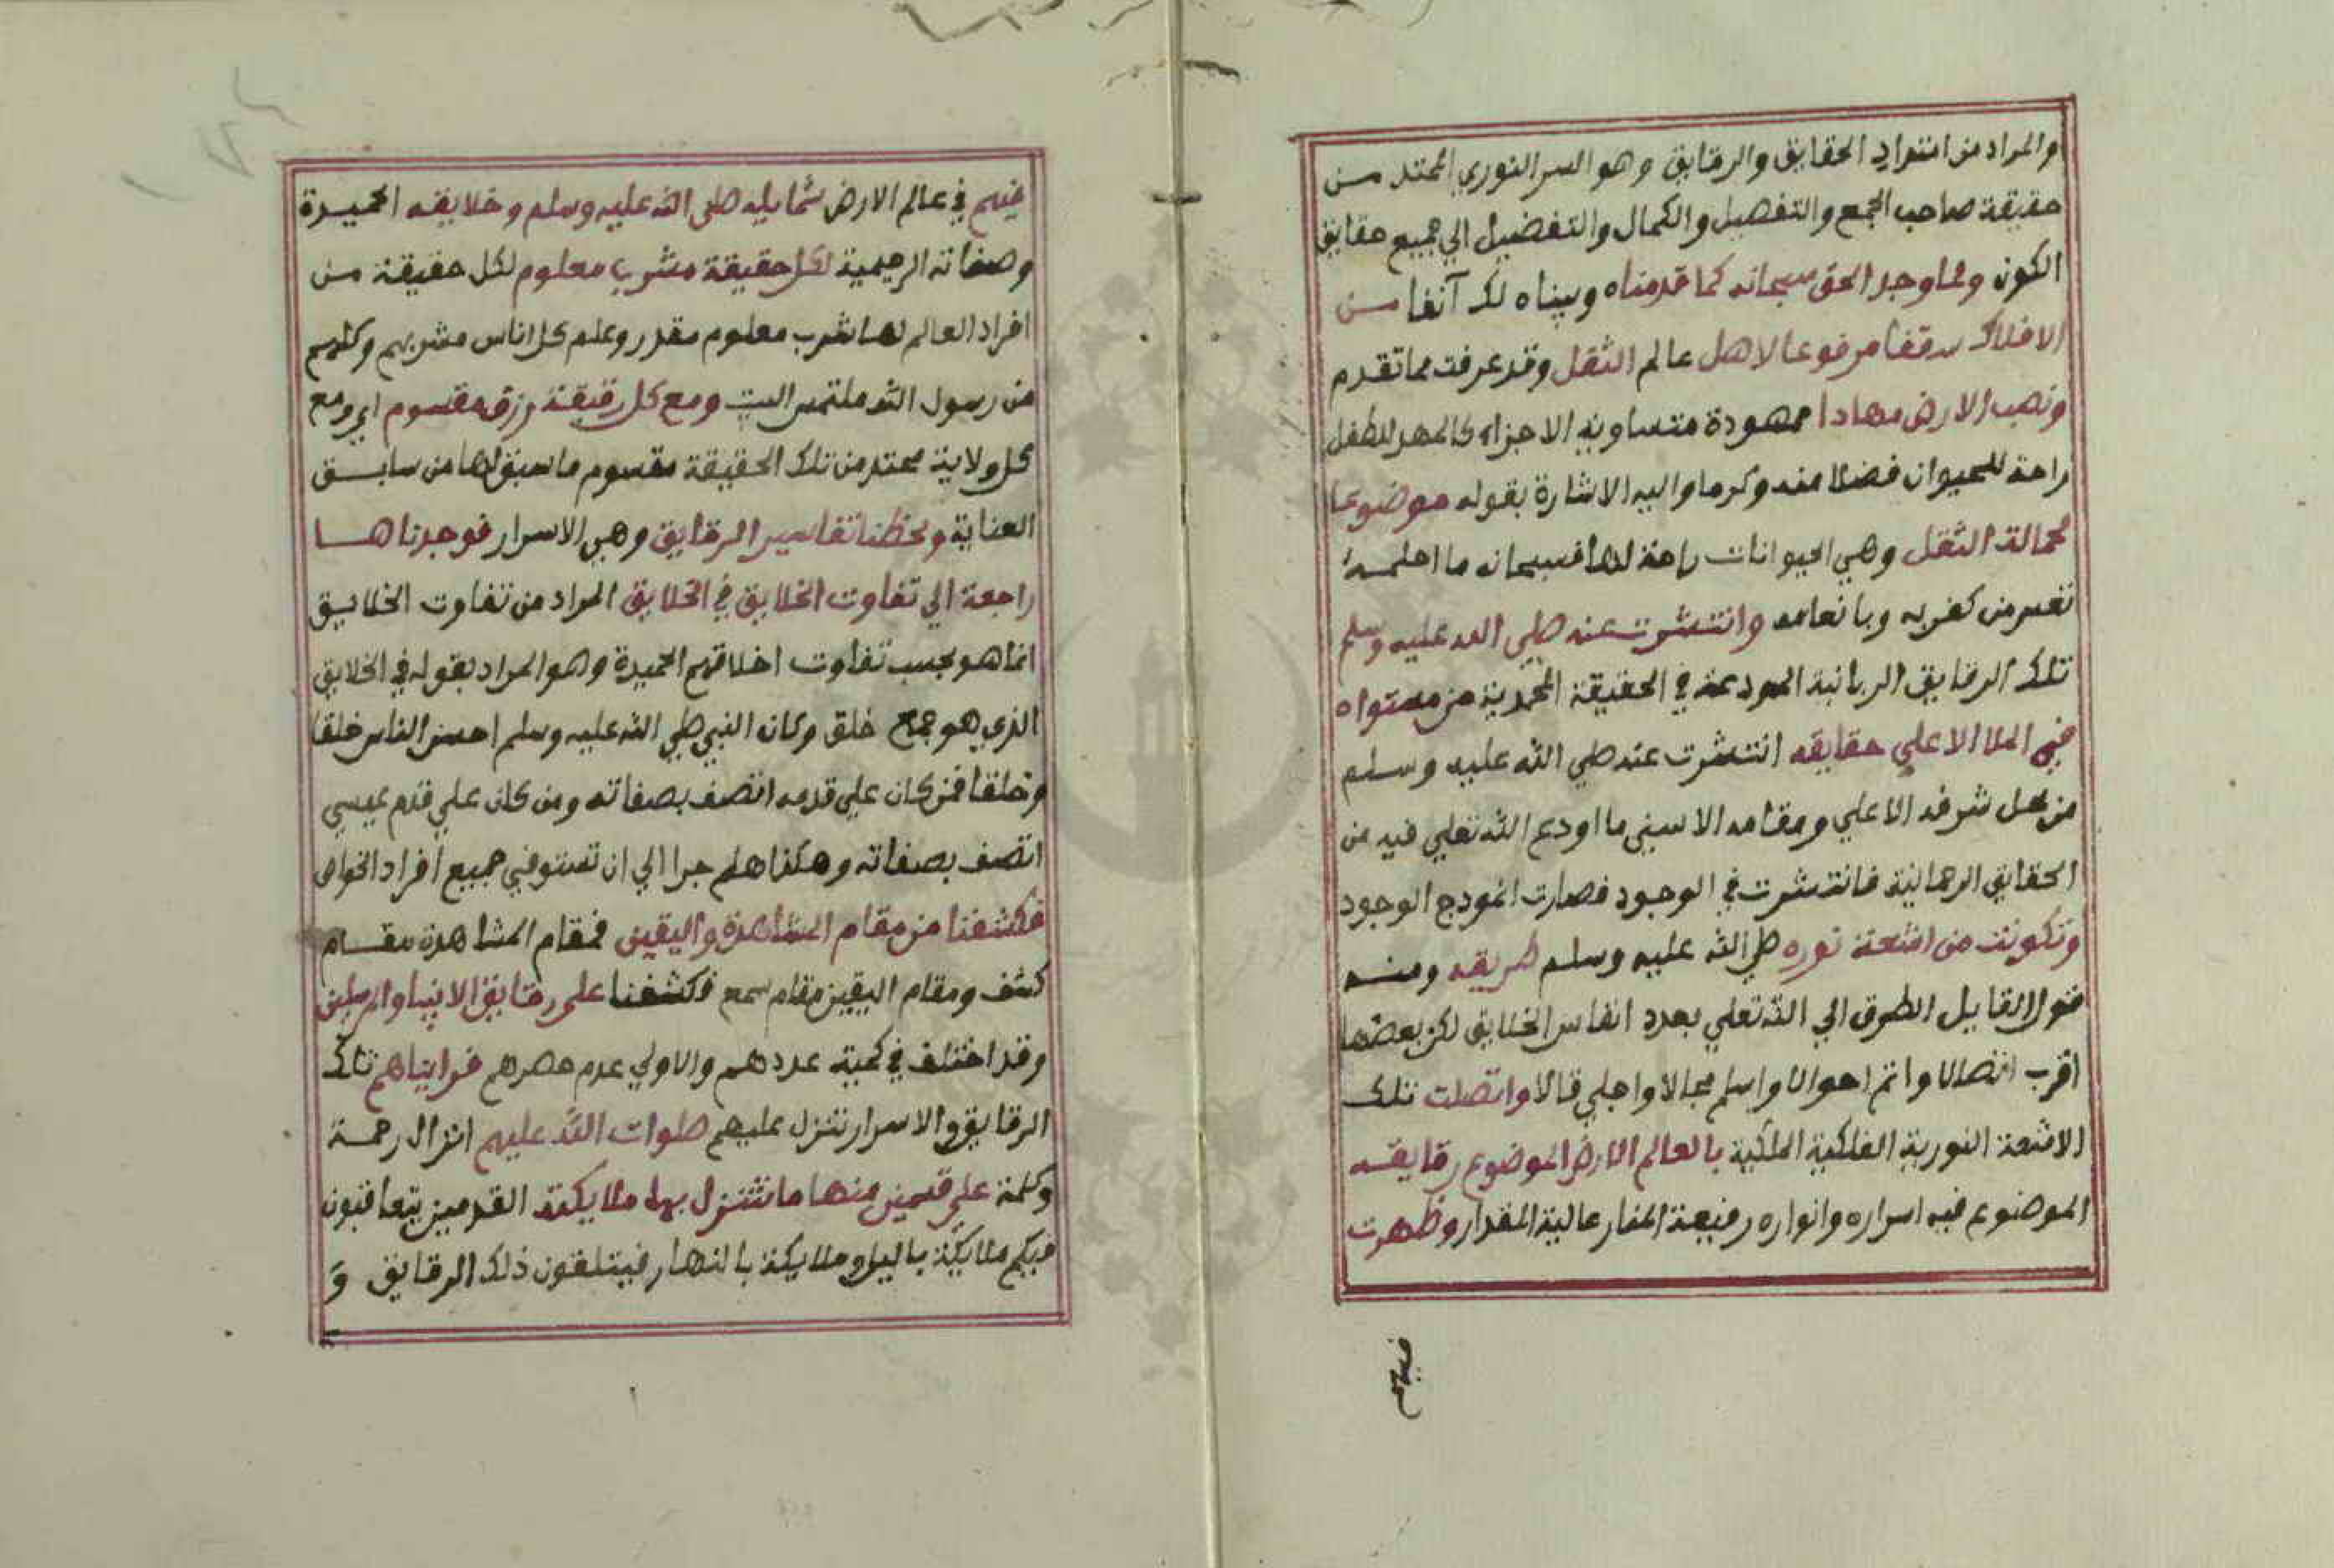 والمراد من امتداد الحقايق والرقايق وهو السر النوري الممتد من
حقيقة صاحب الجمع والتفصيل والكمال والتفضيل الي جميع حقايق
الكون ولما وجد الحق سبحانه كما قدمناه وبيناه لك آنفا من
الافلاك سقفا مرفوعا لاهل عالم الثقل وقد عرفت مما تقدم
ونصب الارض مهادا ممهودة متساوية الاجزاء كالمهد للطفل
راحة للحيوان فضلا منه وكرما واليه الاشارة بقوله موضوعا
لحمالة الثقل وهي الحيوانات راحة لها فسبحانه ما احلمه
نفس من كفر به وبانعامه وانتشرت عنه صلي الله عليه وسلم
تلك الرقايق الربانية المودعة في الحقيقة المحمدية من مستواه
في الملا الاعلي حقايقه انتشرت عنه صلي الله عليه وسلم
من محل شرفه الاعلي ومقامه الاسني ما اودع الله تعلي فيه من
الحقايق الرحمانية فانتشرت في الوجود فصارت انموذج الوجود
وتكونت من اشعة نوره صلي الله عليه وسلم طريقه ومنه
قول القايل الطرق الي الله تعلي بعدد انفاس الخلايق لكن بعضها
اقرب اتصالا واتم احوالا واسلم مجالا واجلي قالا واتصلت تلك
الاشعة النورية الفلكية الملكية بالعالم الارض الموضوع رقايقه
الموضوع فيه اسراره وانواره رفيعة المنار عالية المقدار وظهرت
فيهم
فيهم في عالم الارض شمايله صلي الله عليه وسلم وخلايقه الحميدة
وصفاته الرحيمية لكل حقيقة مشرب معلوم لكل حقيقة من
افراد العالم لها شرب معلوم مقدر وعلم كل اناس مشربهم وكلهم
من رسول الله ملتمس البيت ومع كل رقيقة رزق مقسوم اي ومع
كل ولاية ممتد من تلك الحقيقة مقسوم ما سبق لها من سابق
العناية ولحظنا تفاسير الرقايق وهي الاسرار فوجدناها
راجعة الي تفاوت الخلايق في الخلايق المراد من تفاوت الخلايق
انما هو بحسب تفاوت اخلاقهم الحميدة وهو المراد بقوله في الخلايق
الذي هو جمع خلق وكان النبي صلي الله عليه وسلم احسن الناس خلقا
وخلقا فمن كان علي قدمه اتصف بصفاته ومن كان علي قدم عيسي
اتصف بصفاته وهكذا هلم جرا الي ان تستوفي جميع افراد الخواص
فكشفنا من مقام المشاهدة واليقين فمقام المشاهدة مقام
كشف ومقام اليقين مقام سمع فكشفنا علي رقايق الانبيا والمرسلين
وقد اختلف في كمية عددهم والاولي عدم حصرهم فرايناهم تلك
الرقايق والاسرار تتنزل عليهم صلوات الله عليهم انزال رحمة
وكلمة علي قسمين منها ما تتنزل بها ملايكة القدمين يتعاقبون
فيكم ملايكة بالليل وملايكة بالنهار فيتلقون ذلك الرقايق و